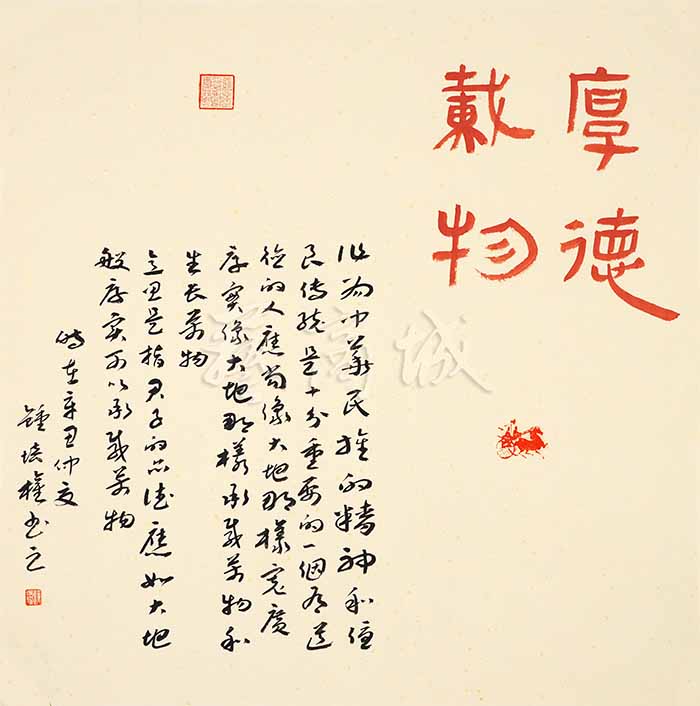 厚德
載物
作為中華民族的精神和優
良傳統是十分重要的一個有道
德的人應當像大地那樣寬廣
厚實像大地那樣承載萬物和
生長萬物
意思是指君子的品德應如大地
般厚實可以承載萬物
時在辛丑仲夏
鍾培權书之
商城